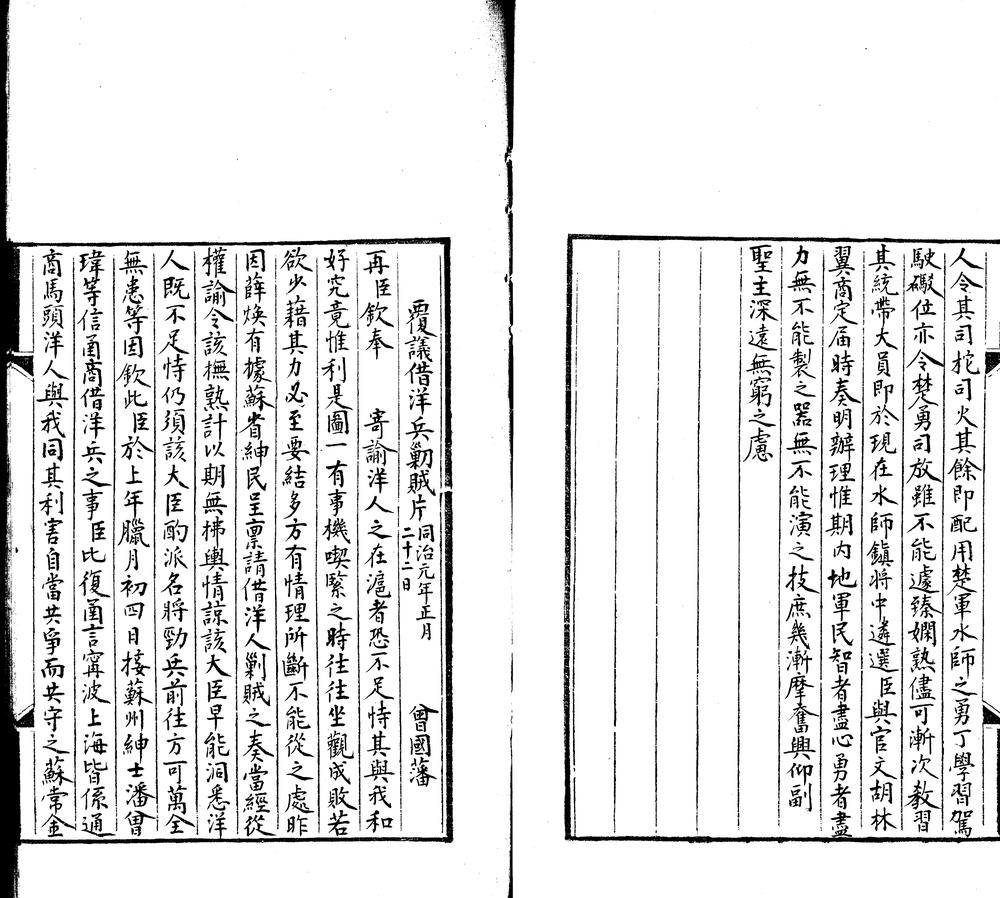 人令其司柁司火其餘即配用楚軍水師之勇丁學習駕
駛礮位亦令楚勇司放雖不能遽臻嫻熟儘可漸次教習
其統帶大員即於現在水師鎮將中遴選臣與官文胡林
翼商定届時奏明辦理惟期内地軍民智者盡心勇者盡
力無不能製之器無不能演之技庶幾漸摩奮興仰副
聖主深遠無窮之慮
覆議借洋兵勦賊片 同治元年正月二十二日 曾國藩
再臣欽奉 寄諭洋人之在滬者恐不足恃其與我和
好究竟惟利是圖一有事機喫緊之時往往坐觀成敗若
欲少藉其力必至要結多方有情理所斷不能從之處昨
因薛焕有據蘇省紳民呈禀請借洋人剿賊之奏當經從
權諭令該撫熟計以期無拂輿情諒該大臣早能洞悉洋
人既不足恃仍須該大臣酌派名將勁兵前往方可萬全
無患等因欽此臣於上年臘月初四日接蘇州紳士潘曾
瑋等信函商借洋兵之事臣比復函言寧波上海皆係通
商馬頭洋人與我同其利害自當共爭而共守之蘇常金